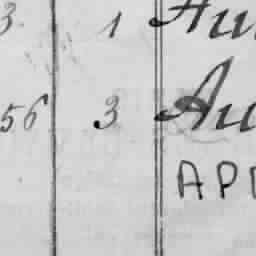 3 1 Au
56 3 Au
APR